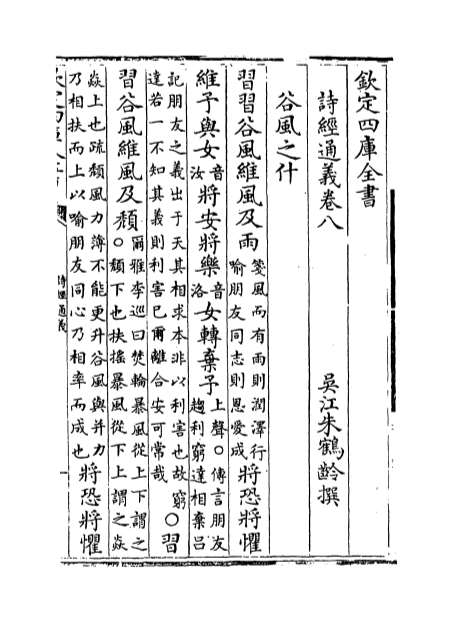 欽定四庫全書
詩經通義卷八
吳江朱鶴齡撰
谷風之什
習習谷風維風及雨箋風而有雨則潤澤行喻朋友同志則恩愛成將恐將懼
維予與女音汝將安將樂音洛女轉棄予上聲○傳言朋友趨利窮達相棄吕
記朋友之義出于天其相求本非以利害也故窮達若一不知其義則利害已爾離合安可常哉○習
習谷風維風及頹○爾雅李巡曰焚輪暴風從上下謂之頹下也扶搖暴風從下上謂之焱
焱上也疏頹風力薄不能更升谷風與并力乃相扶而上以喻朋友同心乃相率而成也將恐將懼
詩經通義
一